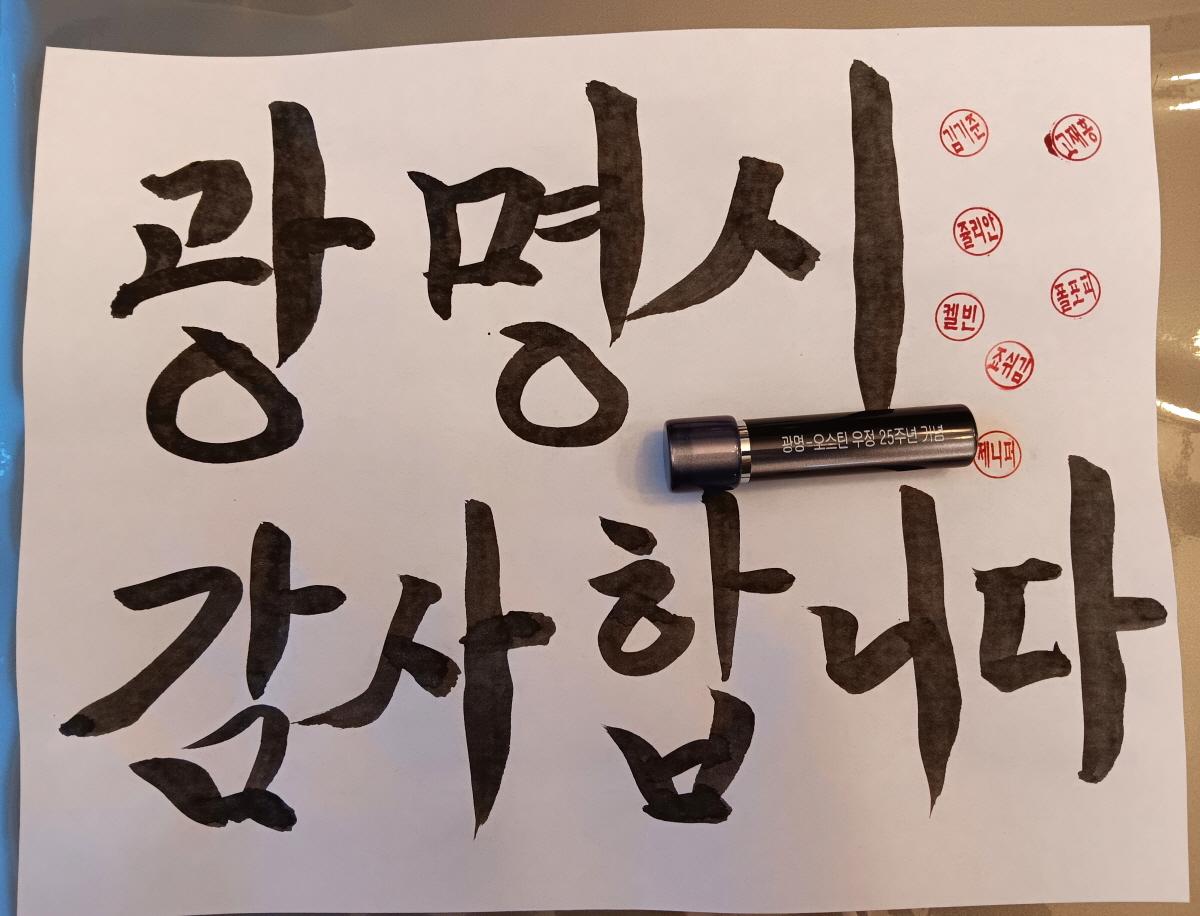 광명시
김기준
고재흥
쥴리안
폴포피
켈빈
죠쉬김
광명-오스틴 우정 25주년 기념
제니퍼
감사합니다